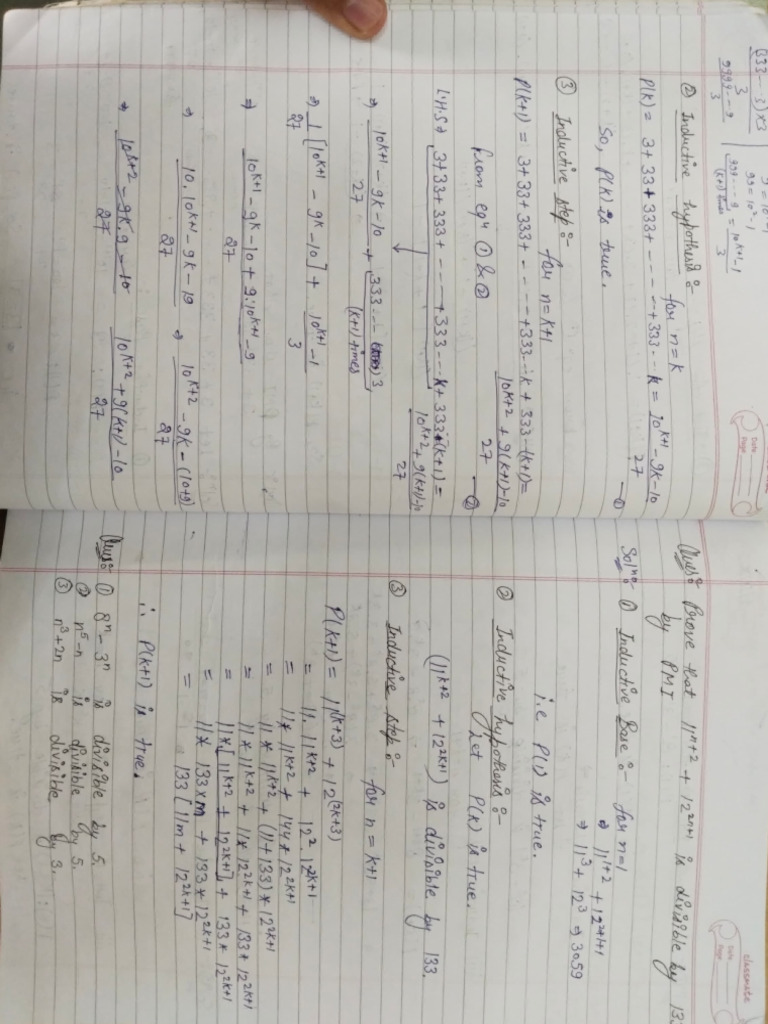 (333 -- 3) × 3
3
9999 -- 9
3
99 = 10² - 1
999 --- 9 = 10^(k+1) - 1
(k+1) times 3
② Inductive hypothesis :-
for n = k
P(k) = 3 + 33 + 333 + ---- + 333 -- k = (10^(k+1) - 9k - 10)/27 —①
So, P(k) is true.
③ Inductive step :-
for n = k+1
P(k+1) = 3 + 33 + 333 + ---- + 333 -- k + 333 -- (k+1) =
(10^(k+2) + 9(k+1) - 10)/27 —②
from eqⁿ ① & ②
L.H.S ⇒ 3 + 33 + 333 + ---- + 333 --- k + 333 -- (k+1) =
(10^(k+2) + 9(k+1) - 10)/27
⇒ (10^(k+1) - 9k - 10)/27 + 333 --- 3
(k+1) times
⇒ 1/27 [10^(k+1) - 9k - 10] + (10^(k+1) - 1)/3
⇒ (10^(k+1) - 9k - 10 + 9·10^(k+1) - 9)/27
⇒ (10·10^(k+1) - 9k - 19)/27 ⇒ (10^(k+2) - 9k - (10+9))/27
⇒ (10^(k+2) - 9k·9 - 10)/27 (10^(k+2) + 9(k+1) - 10)/27
classmate
Date
Page
Ques:- Prove that 11^(n+2) + 12^(2n+1) is divisible by
by PMI
Solⁿ:- ① Inductive Base :- for n = 1
⇒ 11^(1+2) + 12^(2+1)
⇒ 11³ + 12³ ⇒ 3059
i.e P(1) is true.
② Inductive hypothesis :-
Let P(k) is true.
(11^(k+2) + 12^(2k+1)) is divisible by 133.
③ Inductive step :-
for n = k+1
P(k+1) = 11^(k+3) + 12^(2k+3)
= 11·11^(k+2) + 12²·12^(2k+1)
= 11 * 11^(k+2) + 144 * 12^(2k+1)
= 11 * 11^(k+2) + (11+133) * 12^(2k+1)
= 11 * 11^(k+2) + 11 * 12^(2k+1) + 133 * 12^(2k+1)
= 11 * [11^(k+2) + 12^(2k+1)] + 133 * 12^(2k+1)
= 11 * 133 × m + 133 * 12^(2k+1)
= 133 [11m + 12^(2k+1)]
∴ P(k+1) is true.
Ques:- ① 8ⁿ - 3ⁿ is divisible by 5.
② n⁵ - n is divisible by 5.
③ n³ + 2n is divisible by 3.